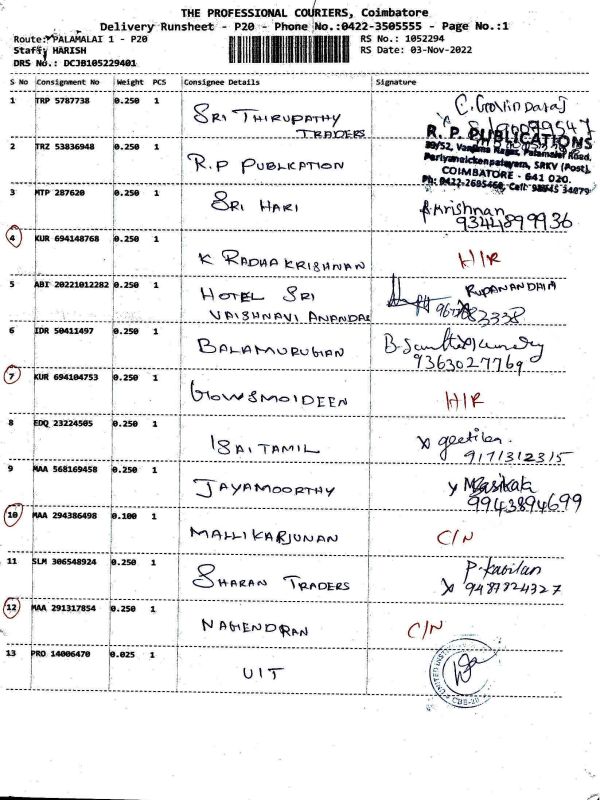 THE PROFESSIONAL COURIERS, Coimbatore
Delivery Runsheet - P20 - Phone No.:0422-3505555 - Page No.:1
Route: PALAMALAI 1 - P20
RS No.: 1052294
Staff: HARISH
RS Date: 03-Nov-2022
DRS No.: DCJB105229401
S No Consignment No Weight PCS Consignee Details Signature
1 TRP 5787738 0.250 1 SRI THIRUPATHY TRADERS C. Govindaraj
2 TRZ 53836948 0.250 1 R.P PUBLICATION
R. P. PUBLICATIONS
89/52, Nagar, Palamalai Road,
Periyanaickenpalayam, SRKV (Post),
COIMBATORE - 641 020.
Ph: 0422-2695460, Cell: 98945 34879
3 MTP 287620 0.250 1 SRI HARI Krishnan
9344899936
4 KUR 694148768 0.250 1 K RADHAKRISHNAN H/R
5 ABI 20221012282 0.250 1 HOTEL SRI VAISHNAVI ANANDAS
6 IDR 50411497 0.250 1 BALAMURUGAN
9363027769
7 KUR 694104753 0.250 1 GOWSMOIDEEN H/R
8 EDQ 23224505 0.250 1 ISAITAMIL geetika.
9171312315
9 MAA 568169458 0.250 1 JAYAMOORTHY
9943894699
10 MAA 294386498 0.100 1 MALLIKARJUNAN C/N
11 SLM 306548924 0.250 1 SHARAN TRADERS P. Kabilan
9487824327
12 MAA 291317854 0.250 1 NAGENDRAN C/N
13 PRO 14006470 0.025 1 UIT
CBE-20